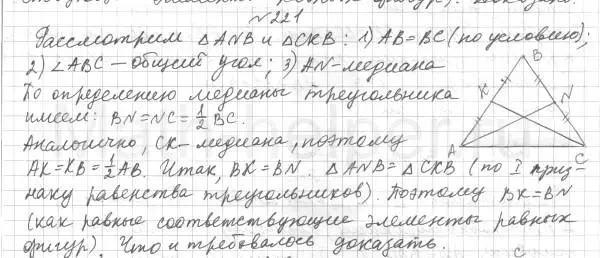 №221
Рассмотрим △ANB и △CKB: 1) AB=BC (по условию);
2) ∠ABC – общий угол; 3) AN – медиана
По определению медианы треугольника
имеем: BN=NC=1/2 BC.
Аналогично, CK – медиана, поэтому
AK=KB=1/2 AB. Итак, BK=BN. △ANB=△CKB (по I приз-
наку равенства треугольников). Поэтому BK=BN
(как равные соответствующие элементы равных
фигур). Что и требовалось доказать.
B
K
N
A
C
C